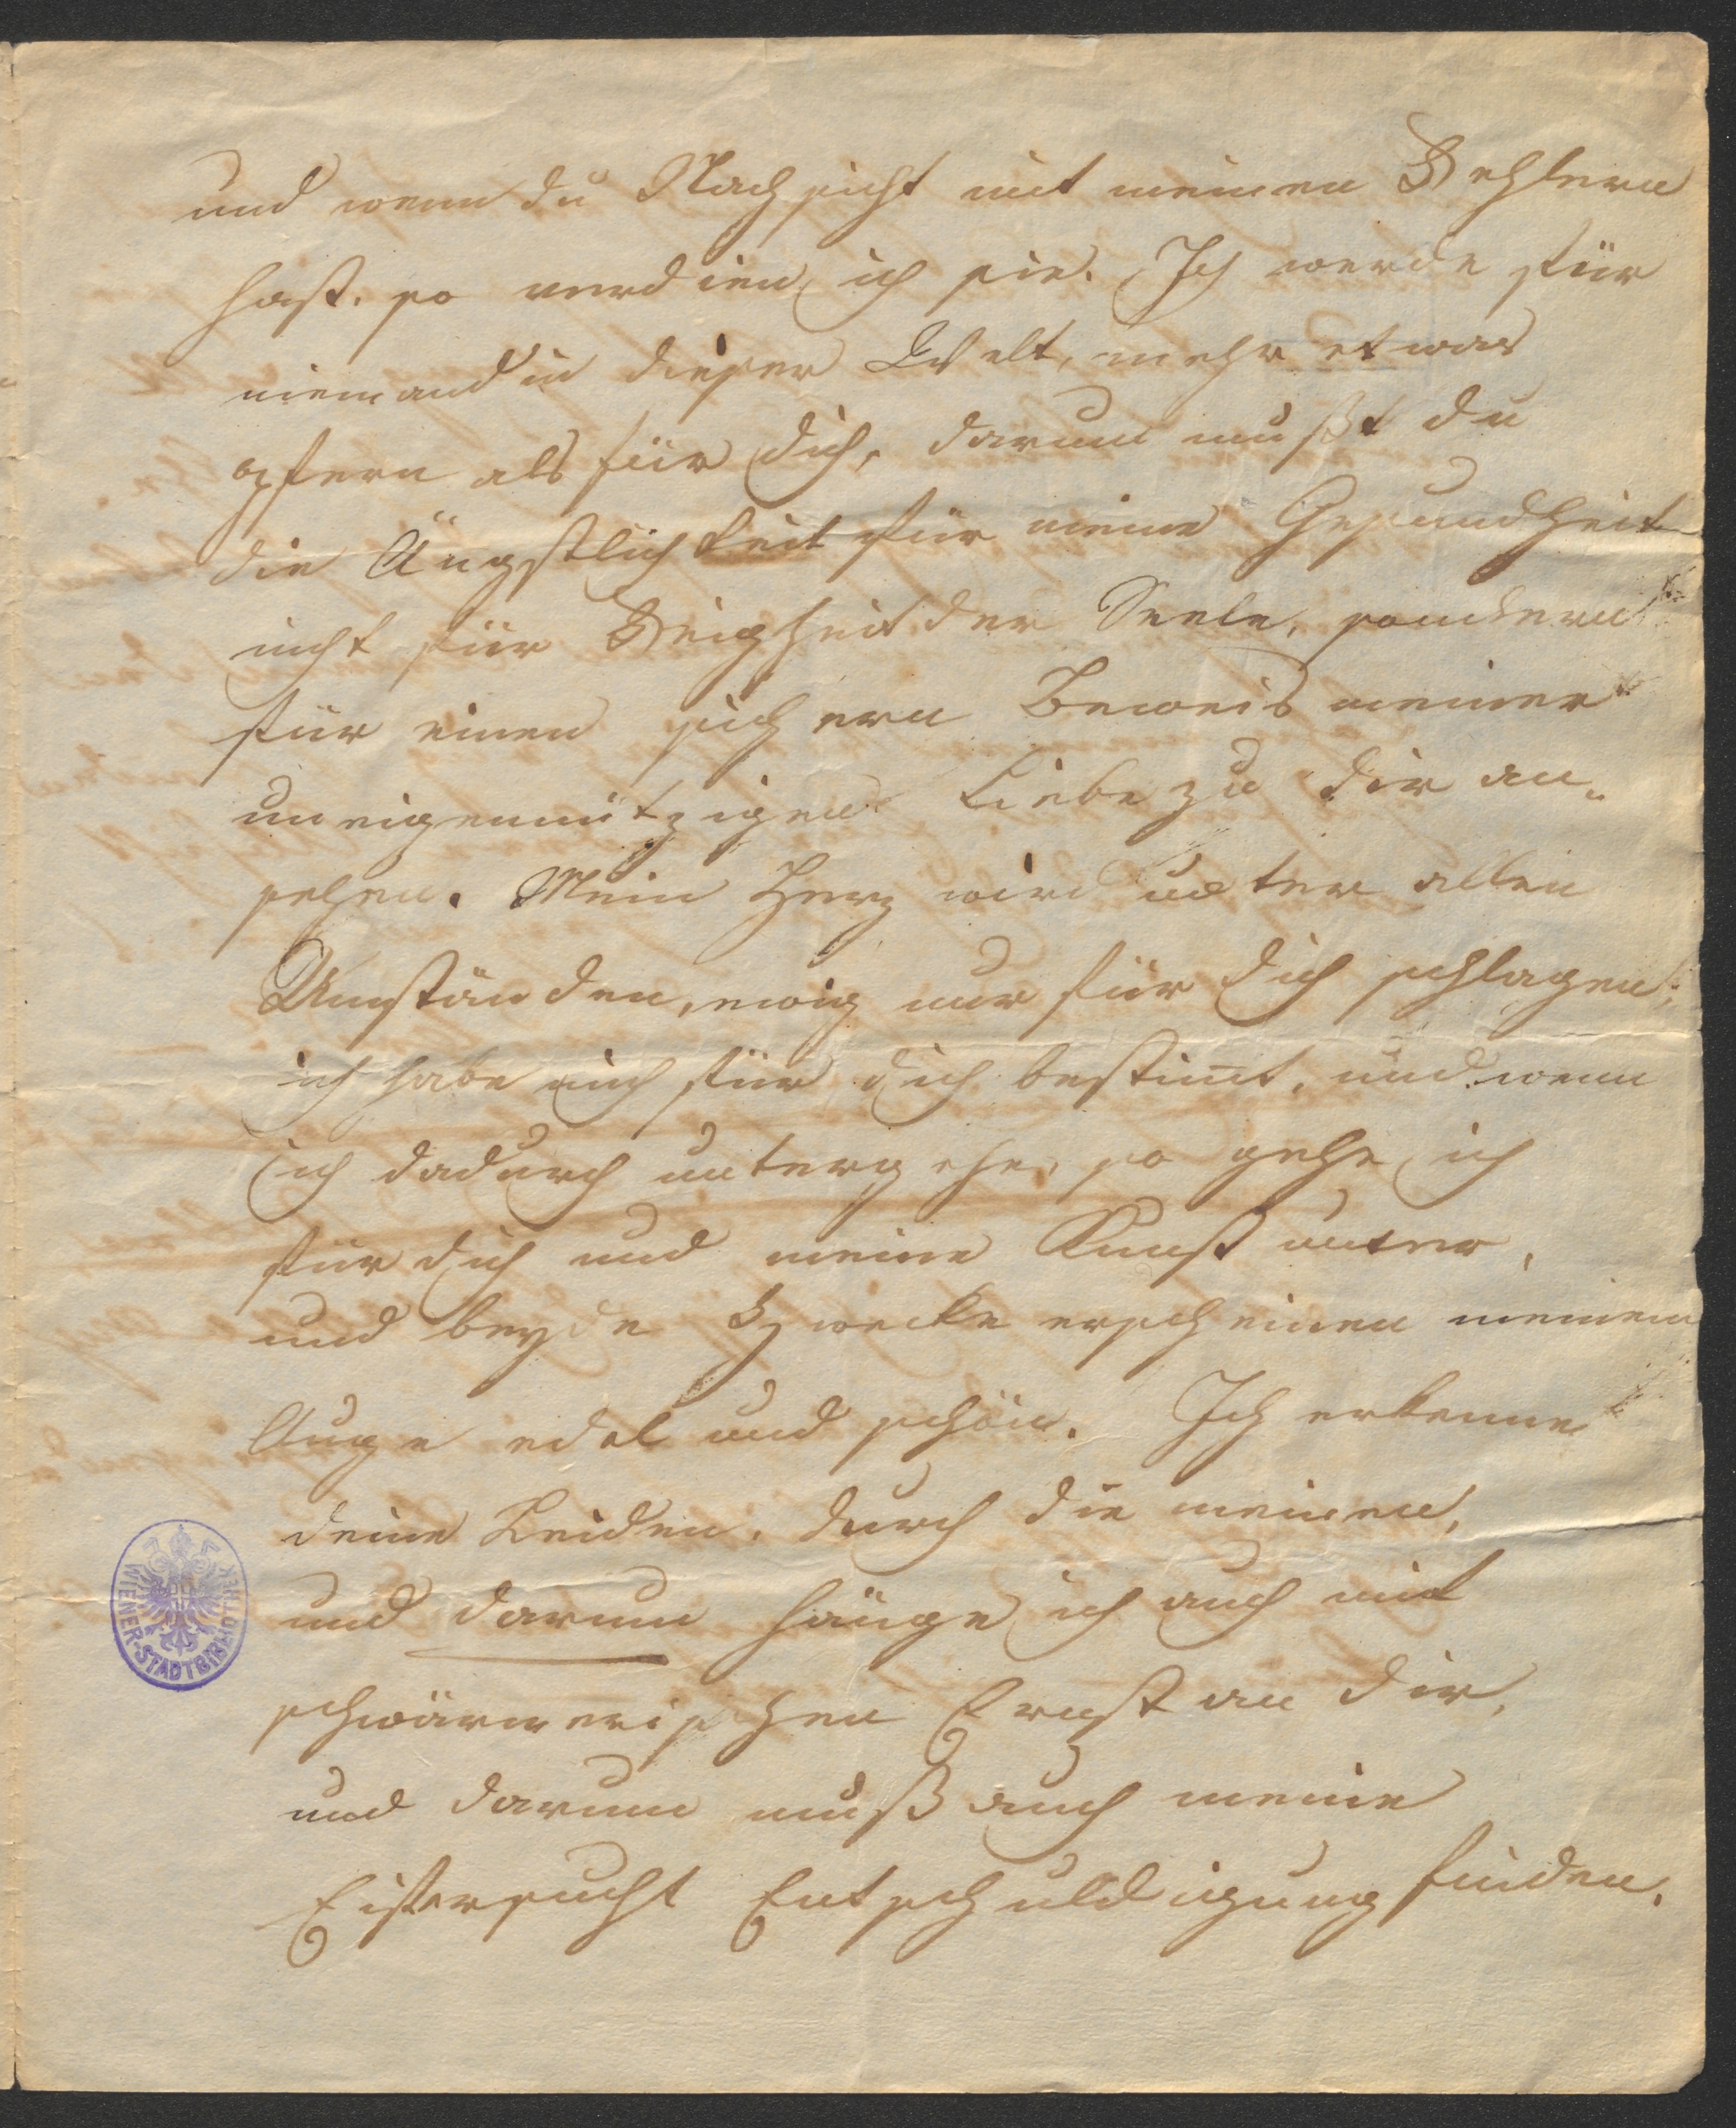 und wenn du Nachsicht mit meinen Fehlern
hast, so verdien ich sie. Ich werde für
niemand in dieser Welt, mehr etwas
opfern als für dich, darum mußt du
die Ängstlichkeit für meine Gesundheit
nicht für Feigheit der Seele, sondern
für einen sichern Beweis meiner
uneigennützigen Liebe zu dir an-
sehen. Mein Herz wird unter allen
Umständen, ewig nur für dich schlagen;
ich habe mich für dich bestim̄t, und wenn
ich dadurch untergehe, so gehe ich
für dich und meine Kunst unter,
und beyde Zwecke erscheinen meinem
Auge edel und schön. Ich erkenne
deine Leiden, durch die meinen,
und darum hänge ich auch mit
schwärmerischen Ernst an dir,
und darum muß auch meine
Eifersucht Entschuldigung finden.
WIENER-STADTBIBLIOTHEK